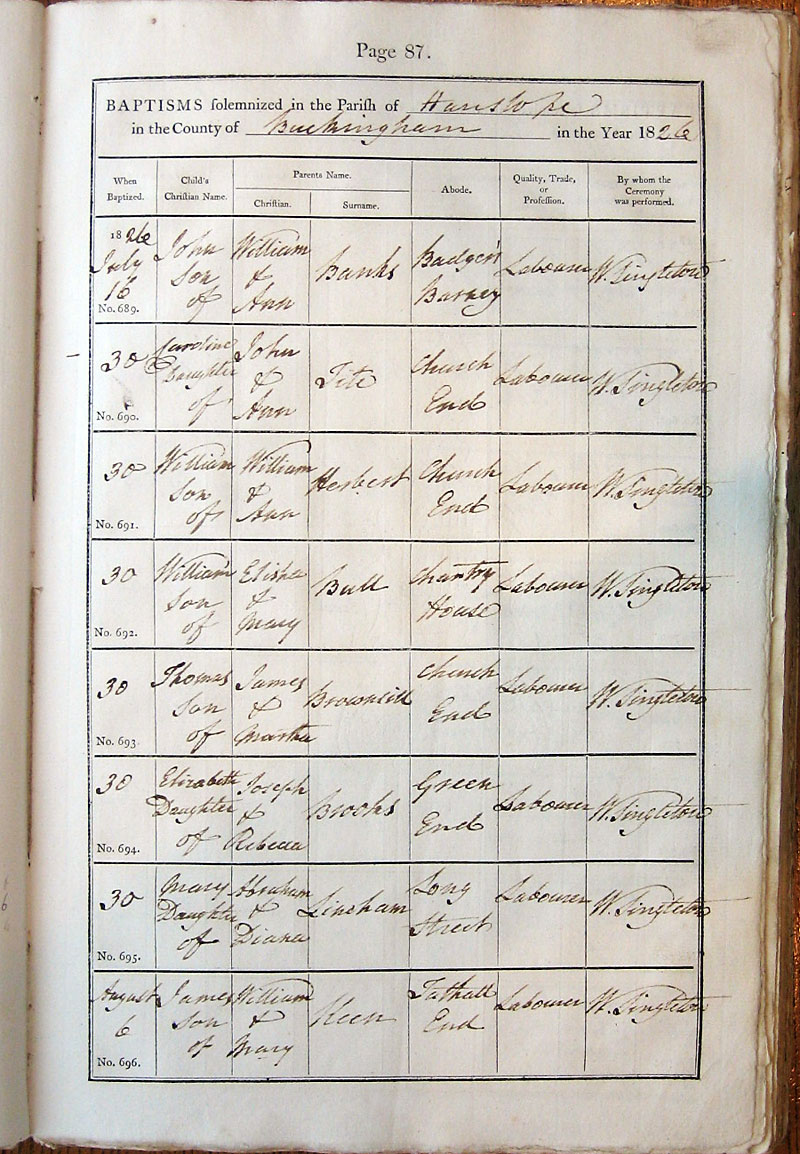 Page 87.
BAPTISMS solemnized in the Parish of Hanslope
in the County of Buckingham in the Year 1826
When Baptized. Child's Christian Name. Parents Name. Abode. Quality, Trade, or Profession. By whom the Ceremony was performed.
Christian. Surname.
1826 July 16 No. 689. John Son of William & Ann Banks Badger's Labourer W. Singleton
30 No. 690. Caroline Daughter of John & Ann Tite Church End Labourer W. Singleton
30 No. 691. William Son of William & Ann Herbert Church End Labourer W. Singleton
30 No. 692. William Son of Elisha & Mary Bull Chantry House Labourer W. Singleton
30 No. 693. Thomas Son of James & Martha Brownsill Church End Labourer W. Singleton
30 No. 694. Elizabeth Daughter of Joseph & Rebecca Brooks Green End Labourer W. Singleton
30 No. 695. Mary Daughter of Abraham & Diana Lineham Long Street Labourer W. Singleton
August 6 No. 696. James Son of William & Mary Keen Tathall End Labourer W. Singleton